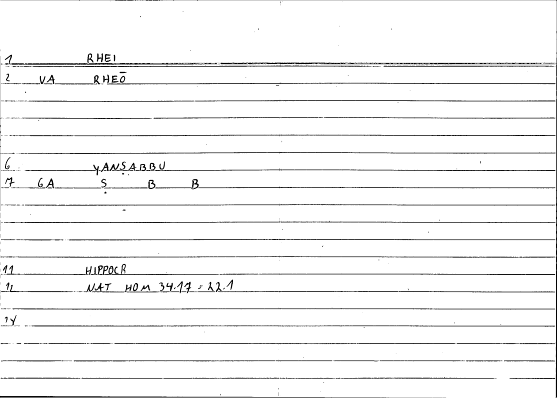 1 RHEI
2 VA RHEŌ
6 YANṢABBU
7 GA Ṣ B B
11 HIPPOCR
12 NAT HOM 34.17 = 22.1
14